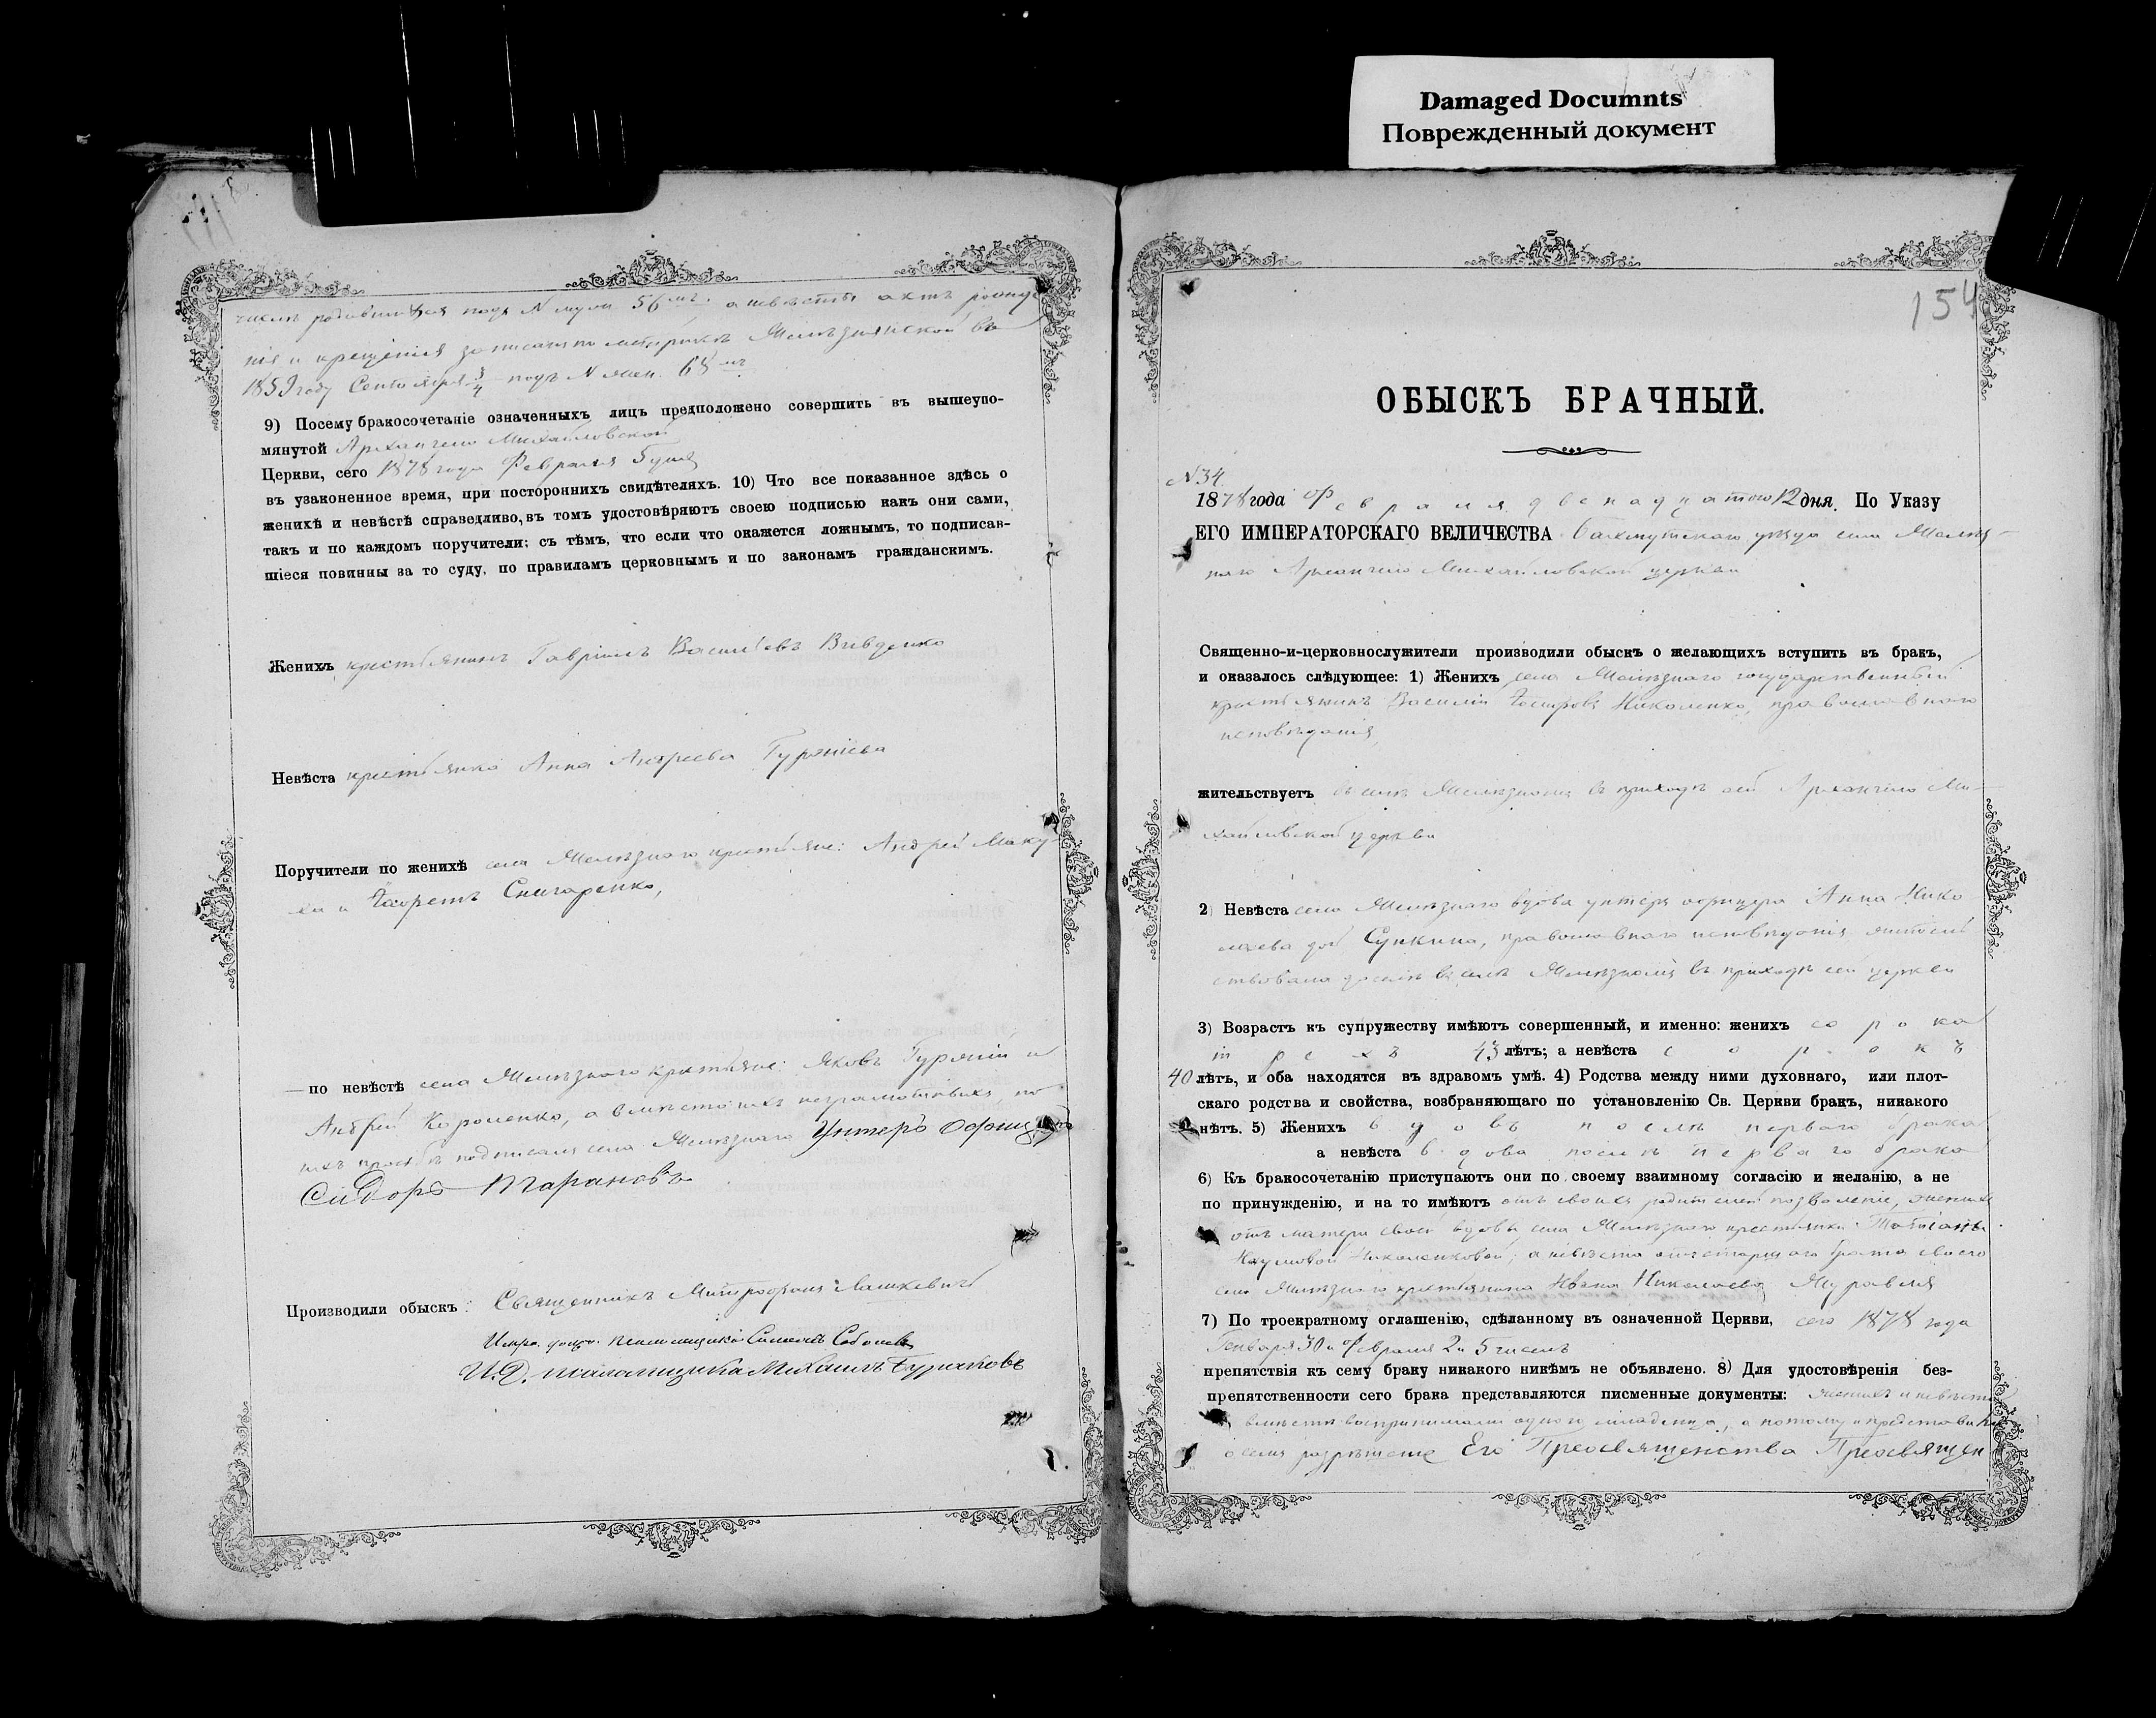 Damaged Documnts
Поврежденный документ
числъ родившійся подъ № муж. 56мъ. а невѣсты актъ рожде
нія и крещенія записанъ по метрикѣ Желѣзянской въ
1859 году Сентября 3/4 подъ № жен. 68мъ
9) Посему бракосочетаніе означенныхъ лицъ предположено совершить въ вышеупо-
мянутой Архангело Михайловской
Церкви, сего 1878 года Февраля 5 дня
въ узаконенное время, при постороннихъ свидѣтеляхъ. 10) Что все показанное здѣсь о
женихѣ и невѣстѣ справедливо, въ томъ удостовѣряютъ своею подписью какъ они сами,
такъ и по каждомъ поручители; съ тѣмъ, что если что окажется ложнымъ, то подписав-
шіеся повинны за то суду, по правиламъ церковнымъ и по законамъ гражданскимъ.
Женихъ крестьянинъ Гавріилъ Васильевъ Вивденко
Невѣста крестьянка Анна Андреева Гуржіева
Поручители по женихѣ села Желѣзнаго крестьяне: Андрей Маку-
ха и Снигаренко,
— по невѣстѣ села Желѣзнаго крестьяне: Яковъ Гуржій и
Андрей Короленко, а вмѣсто ихъ неграмотныхъ, по
ихъ прозьбѣ подписался села Желѣзнаго Унтеръ Офицеръ
Сидоръ Тарановъ
Производили обыскъ: Священникъ Митрофанъ Лашкевичъ
Испр. долж. псаломщика Симеонъ Соболевъ
И.Д. псаломщика Михаилъ Бурлаковъ
154
ОБЫСКЪ БРАЧНЫЙ.
№ 34.
1878 года Февраля двенадцатого 12 дня. По Указу
ЕГО ИМПЕРАТОРСКАГО ВЕЛИЧЕСТВА Бахмутскаго уѣзда села Желѣз-
наго Архангело Михайловской церкви
Священно-и-церковнослужители производили обыскъ о желающихъ вступить въ бракъ,
и оказалось слѣдующее: 1) Женихъ села Желѣзнаго государственный
крестьянинъ Василій Николенко, православнаго
исповѣданія,
жительствуетъ въ селѣ Желѣзномъ въ приходѣ сей Архангело Ми-
хайловской церкви
2) Невѣста села Желѣзнаго вдова унтеръ офицера Анна Нико
лаева Сункина, православнаго исповѣданія жительствовала
въ селѣ Желѣзномъ въ приходѣ сей церкви
3) Возрастъ къ супружеству имѣютъ совершенный, и именно: женихъ сорока
трехъ 43 лѣтъ; а невѣста сорокъ
40 лѣтъ, и оба находятся въ здравомъ умѣ. 4) Родства между ними духовнаго, или плот-
скаго родства и свойства, возбраняющаго по установленію Св. Церкви бракъ, никакого
нѣтъ. 5) Женихъ вдовъ послѣ перваго брака
а невѣста вдова послѣ перваго брака
6) Къ бракосочетанію приступаютъ они по своему взаимному согласію и желанію, а не
по принужденію, и на то имѣютъ отъ своихъ родителей позволеніе, женихъ
отъ матери своей вдовы села Желѣзнаго крестьянки Татіаны
Наумовой Николенковой; а невѣста отъ старшаго брата своего
села Желѣзнаго крестьянина Ивана Николаева Журавля
7) По троекратному оглашенію, сдѣланному въ означенной Церкви, сего 1878 года
Генваря 30 и Февраля 2 и 5 чиселъ
препятствія къ сему браку никакого никѣмъ не объявлено. 8) Для удостовѣренія без-
препятственности сего брака представляются писменные документы: женихъ и невѣста
вмѣстѣ воспринимали одного младенца, а потому и представили
о семъ разрѣшеніе Его Преосвященства Преосвящен